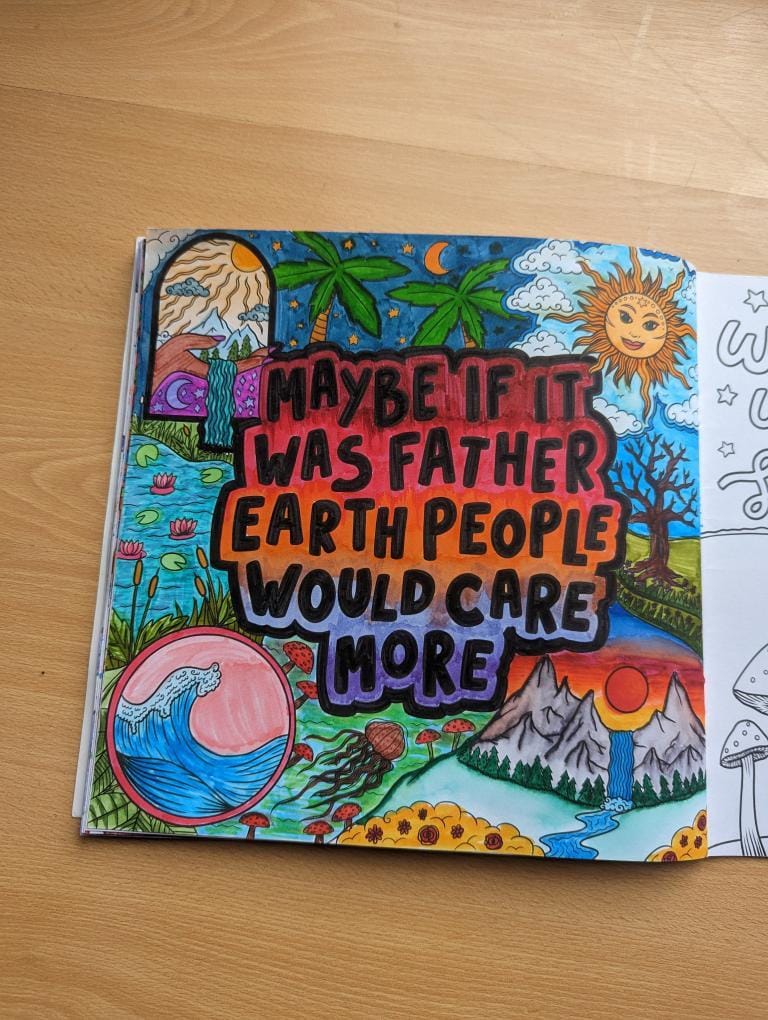 MAYBE IF IT
WAS FATHER
EARTH PEOPLE
WOULD CARE
MORE